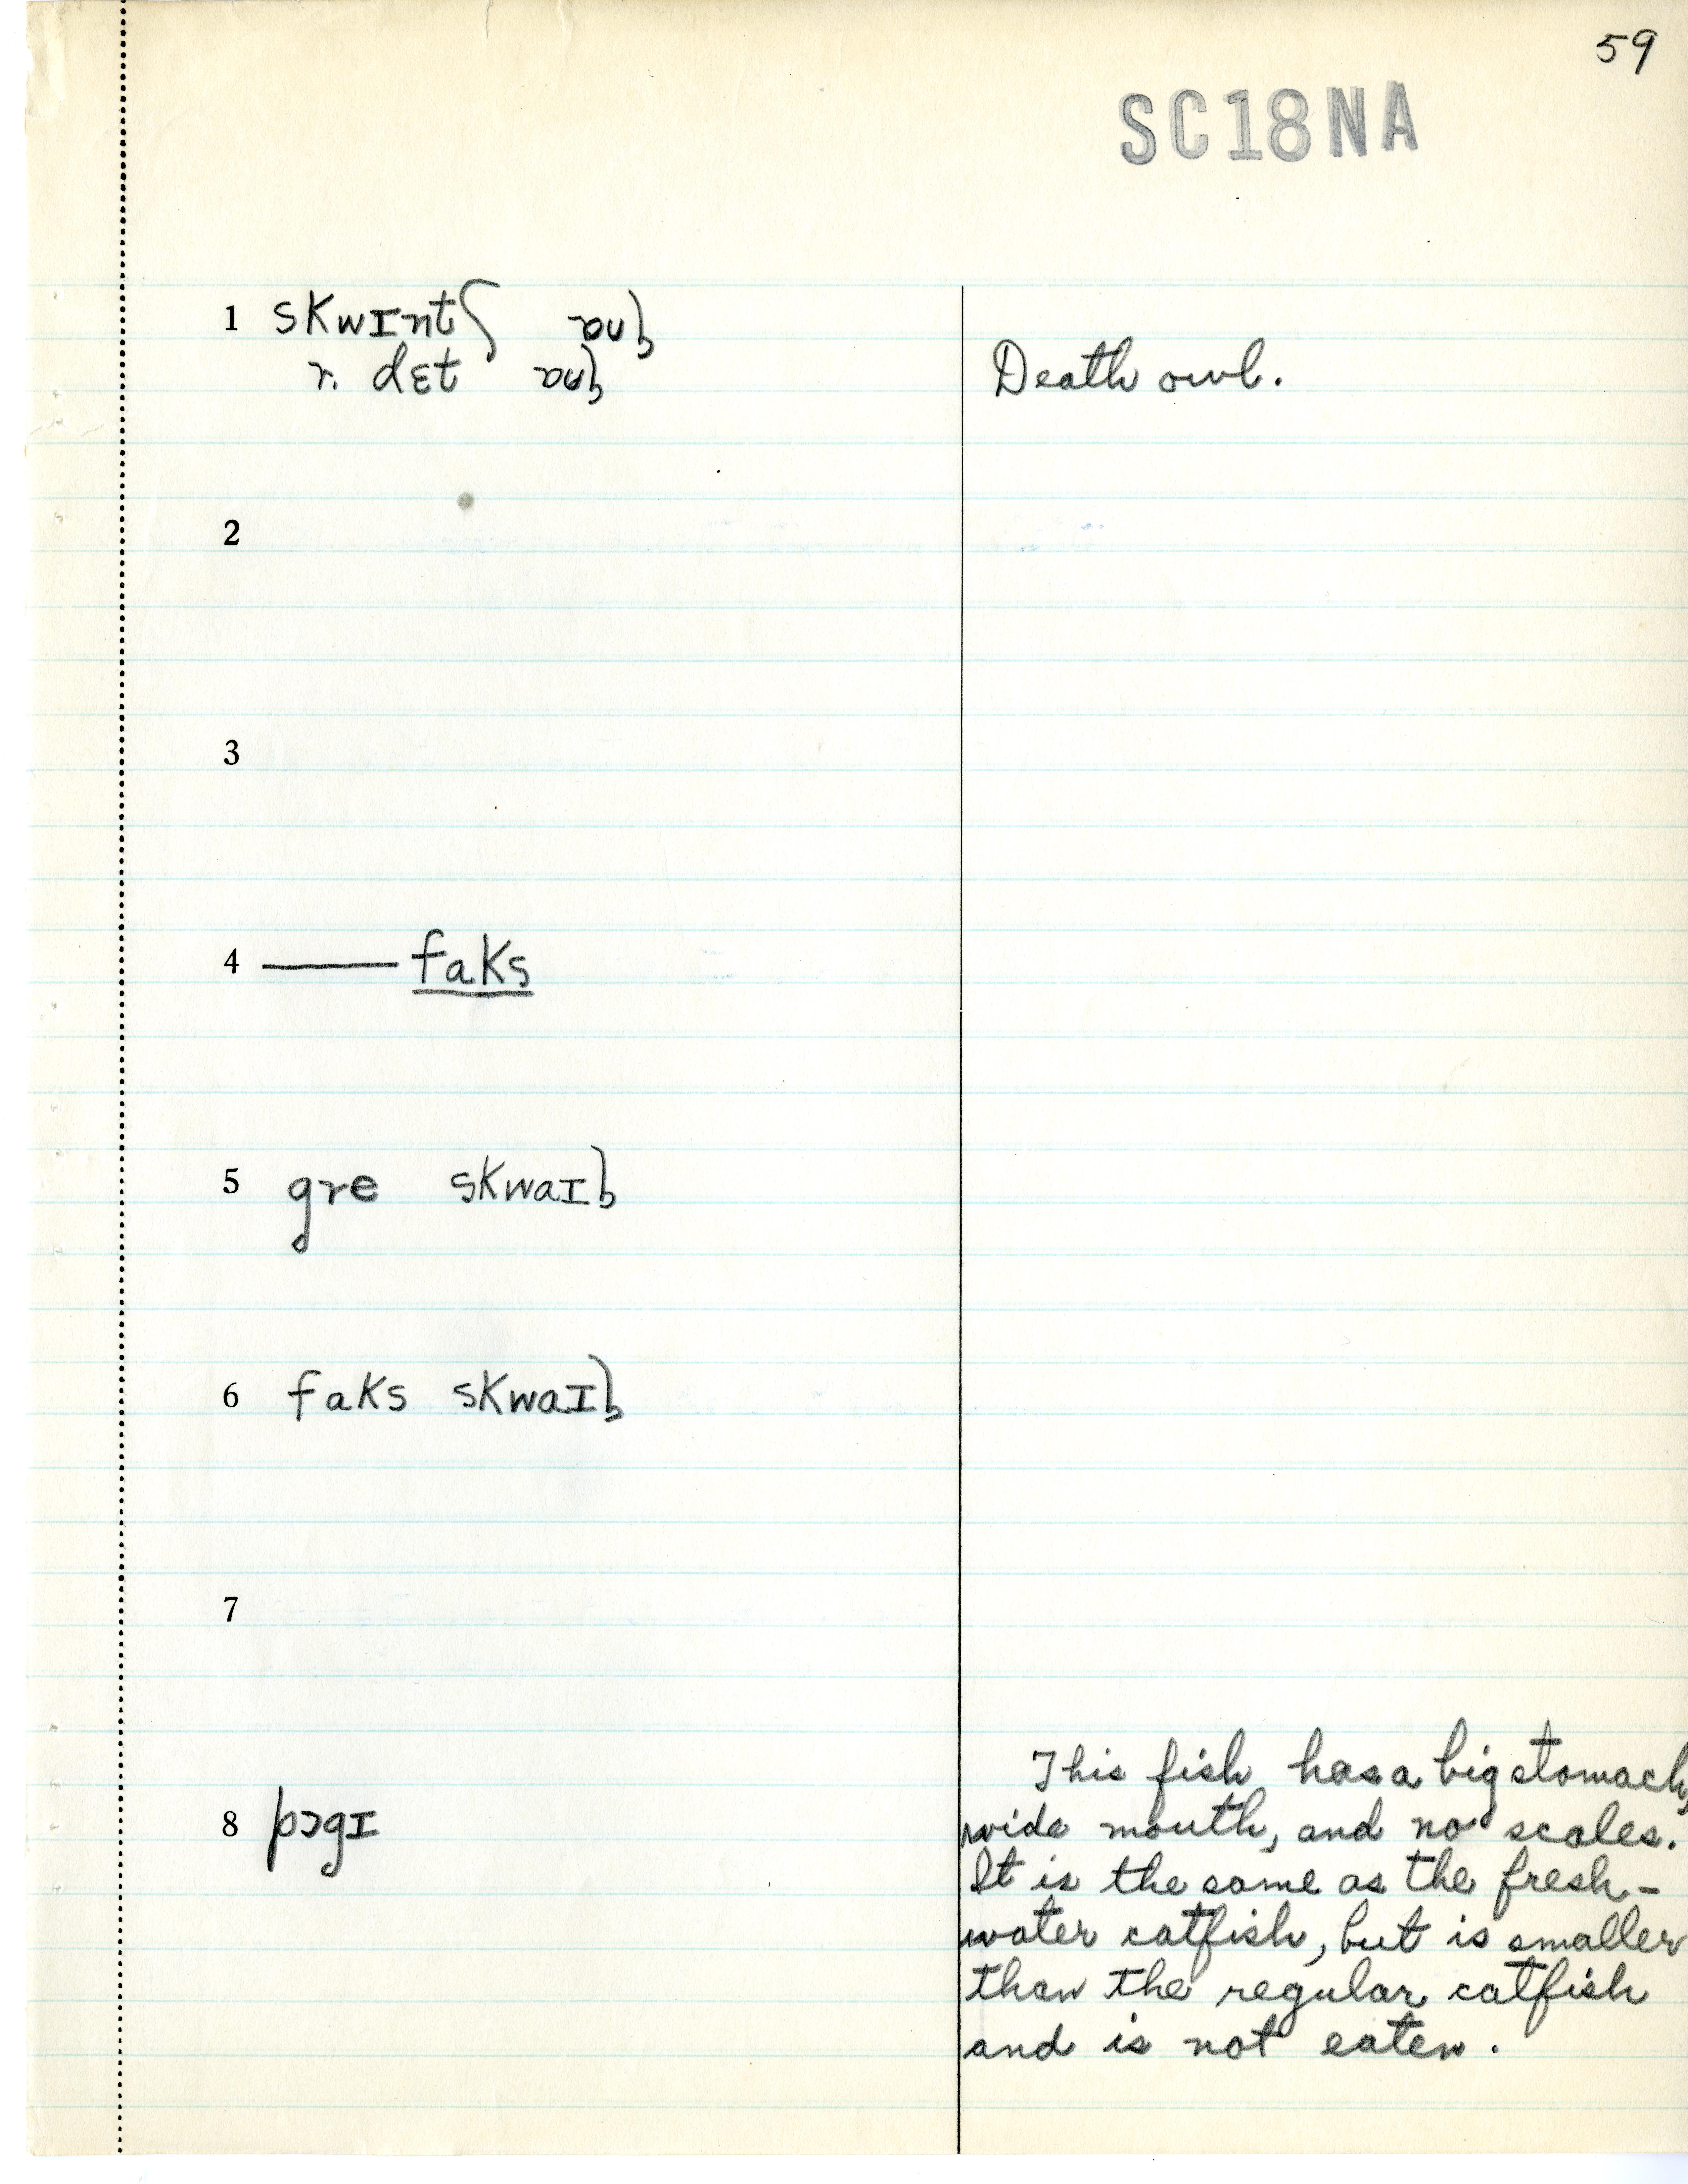 59
SC18NA
1 skwɪntʃ ɒʊɫ
r. dɛt ɒʊɫ
Death owl.
2
3
4 —— faks
5 gre skwaɪɫ
6 faks skwaɪɫ
7
This fish has a big stomach,
8 pɔgɪ
wide mouth, and no scales.
It is the same as the fresh-
water catfish, but is smaller
than the regular catfish
and is not eaten.